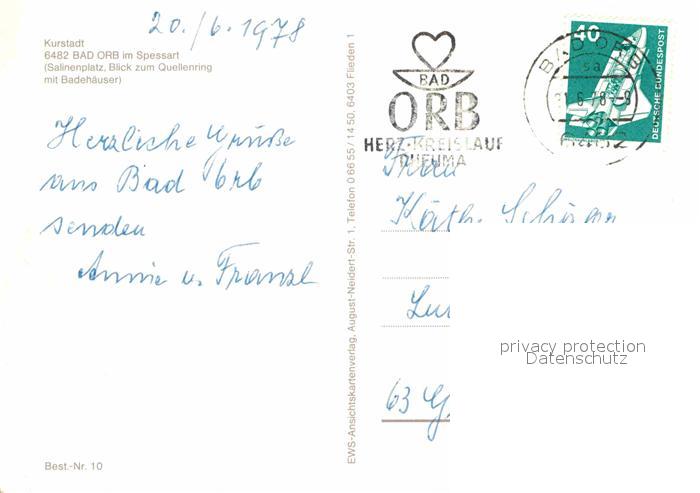 20./6.1978
Kurstadt
6482 BAD ORB im Spessart
(Salinenplatz, Blick zum Quellenring
mit Badehäuser)
Herzliche Grüße
aus Bad Orb
senden
Annie u. Franzl
Best.-Nr. 10
EWS-Ansichtskartenverlag, August-Neidert-Str. 1, Telefon 0 66 55 / 14 50, 6403 Flieden 1
BAD
ORB
HERZ-KREISLAUF
RHEUMA
40
DEUTSCHE BUNDESPOST
BAD ORB
sa
Frau
Käth.
63 G
privacy protection
Datenschutz